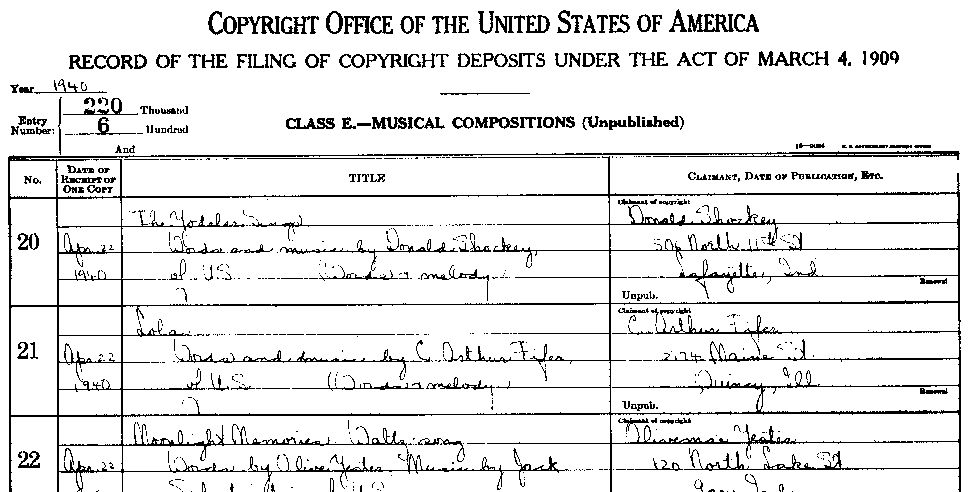 COPYRIGHT OFFICE OF THE UNITED STATES OF AMERICA
RECORD OF THE FILING OF COPYRIGHT DEPOSITS UNDER THE ACT OF MARCH 4, 1909
Year 1940
Entry Number: 220 Thousand
6 Hundred
And
CLASS E.—MUSICAL COMPOSITIONS (Unpublished)
No. DATE OF RECEIPT OF ONE COPY TITLE CLAIMANT, DATE OF PUBLICATION, ETC.
Claimant of copyright
The Yodeler Donald Shockey
20 Apr. 22 Words and music by Donald Shockey, North 11th St
1940 of U.S. (Words & melody Lafayette, Ind
Renewal
Unpub.
Claimant of copyright
Lola C. Arthur Fifer
21 Apr. 22 Words and music by C. Arthur Fifer, Maine St.
1940 of U.S. (Words & melody) Quincy, Ill
Renewal
Unpub.
Claimant of copyright
Moonlight Memories Waltz song Yeater
22 Apr. 22 Words by Olive Yeater, Music by Jack 120 North Lake St
of U.S. Gary, Ind